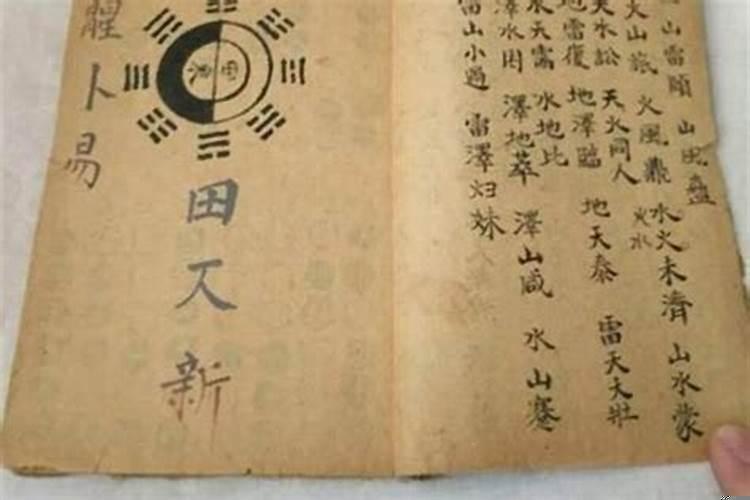 山雷頤 山風蠱
火山旅 火風鼎
水火未濟 山水蒙
火水
天水訟 天火同人
地雷復 地澤臨 地天泰 雷天大壯
水天需 水地比
澤水困 澤地萃 澤山咸 水山蹇
雷山小過 雷澤归妹
田
新
卜易